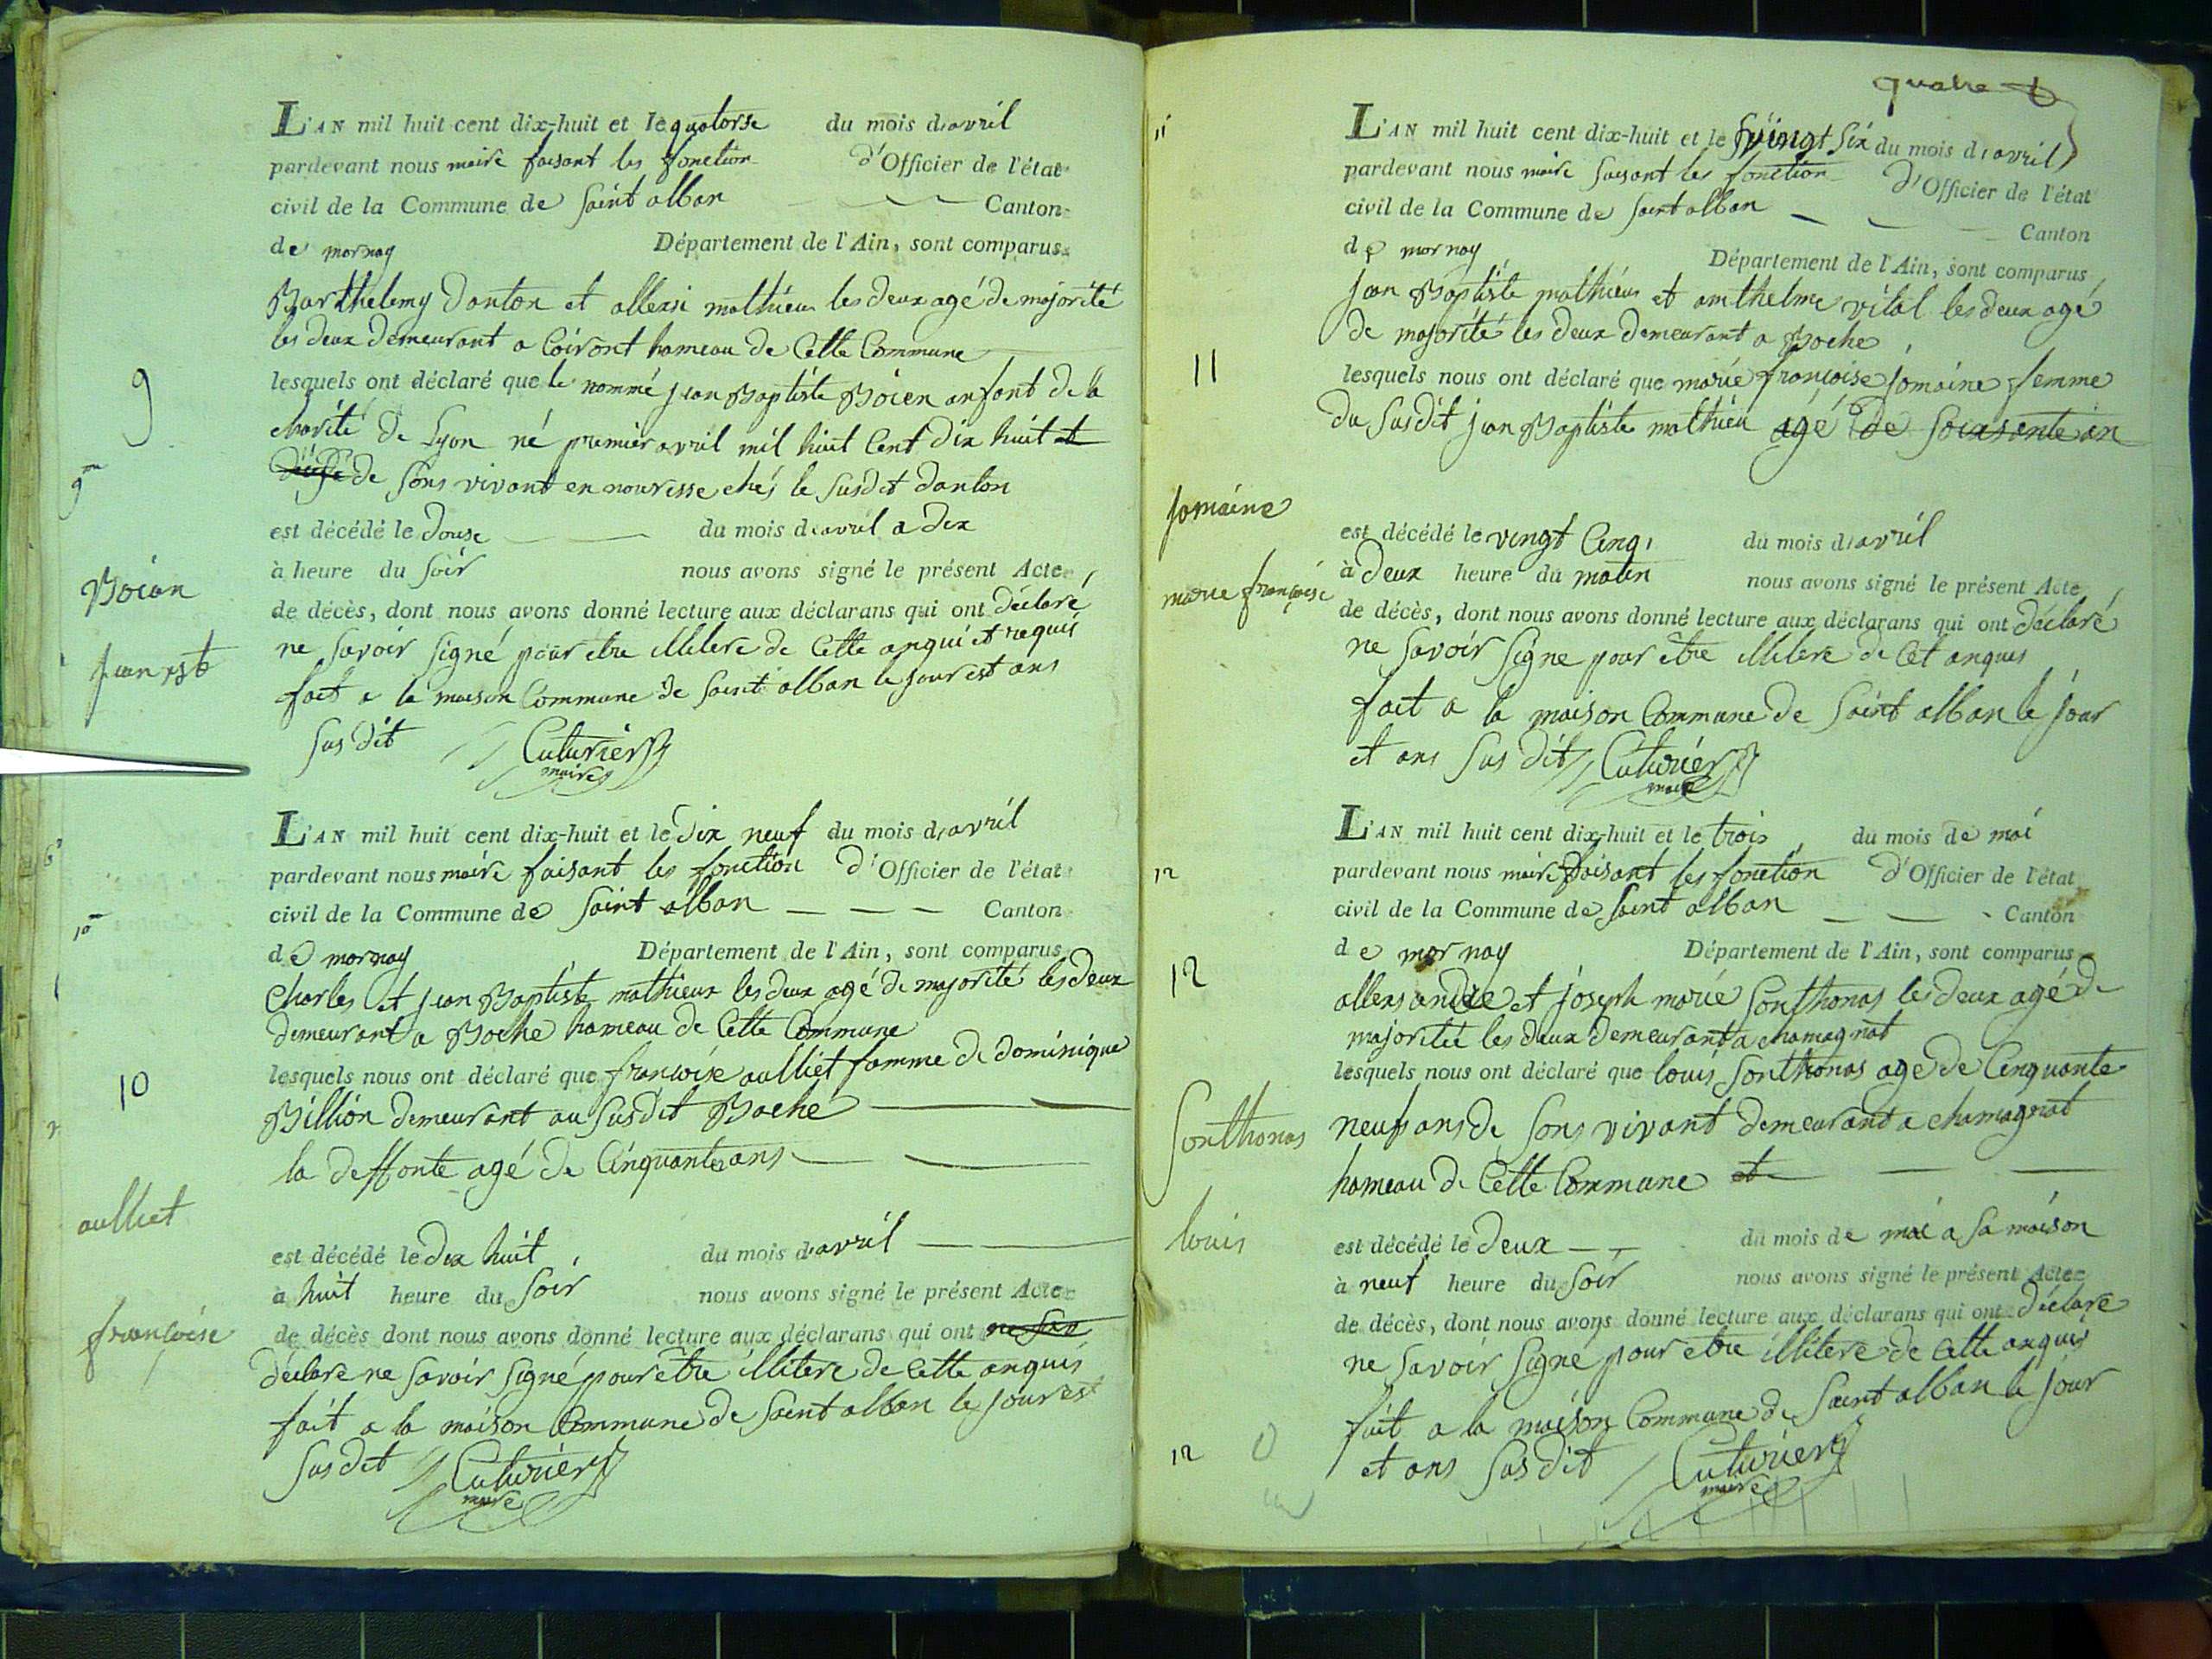 L'AN mil huit cent dix-huit et le quatorse du mois d'avril
pardevant nous maire faisant les fonction d'Officier de l'état
civil de la Commune de saint alban Canton
de mornay Département de l'Ain, sont comparus
Barthelemy Danton et allexi mathieu les deux agé de majorité
les deux demeurant a Coiront hameau de Cette Commune
9
lesquels ont déclaré que le nommé jean Baptiste Boien anfant de la
charité de Lyon né premier avril mil huit Cent dix huit et
9me
de sons vivant en nourisse chés le susdit danton
est décédé le douse du mois d'avril a dix
à heure du soir nous avons signé le présent Acte
Boian
de décès, dont nous avons donné lecture aux déclarans qui ont déclaré
jean Bte
ne savoir signé pour etre illitere de Cette anqui et requis
fait a la maison Commune de saint alban le jour est ans
sus dit Cuturier
maire
L'AN mil huit cent dix-huit et le dix neuf du mois d'avril
pardevant nous maire faisant les fonction d'Officier de l'état
civil de la Commune de saint alban Canton
10me
de mornay Département de l'Ain, sont comparus
Charles et jean Baptiste mathieux les deux agé de majorité les deux
demeurant a Boche hameau de Cette Commune
10
lesquels nous ont déclaré que francoise aulliet famme de dominique
Billion demeurant au susdit Boche
la deffonte agé de Cinquante ans
aulliet
est décédé le dix huit du mois d'avril
à huit heure du soir nous avons signé le présent Acte
francoise
de décès dont nous avons donné lecture aux déclarans qui ont ne sav
déclare ne savoir signé pour être illitere de Cette anquis
fait a la maison Commune de saint alban le jour est
susdit Cuturier
maire
quatre
11
L'AN mil huit cent dix-huit et le vingt six du mois d'avril
pardevant nous maire faisant les fonction d'Officier de l'état
civil de la Commune de saint alban Canton
de mornay Département de l'Ain, sont comparus
jean Baptiste mathieu et anthelme vital les deux agé
de majorité les deux demeurant a Boche
11
lesquels nous ont déclaré que marie françoise jomaine femme
du susdit jean Baptiste mathieu agé de soixsante an
jomaine
est décédé le vingt Cinq du mois d'avril
marie françoise
à deux heure du matin nous avons signé le présent Acte
de décès, dont nous avons donné lecture aux déclarans qui ont déclaré
ne savoir signe pour être illitere de Cet anquis
fait a la maison Commune de saint alban le jour
et ans sus dit Cuturier
maire
L'AN mil huit cent dix-huit et le trois du mois de mai
12
pardevant nous maire faisant les fonction d'Officier de l'état
civil de la Commune de saint alban Canton
de mornay Département de l'Ain, sont comparus
12
allexsandre et joseph marie Sonthonas les deux agé de
majoritée les deux demeurant a chamagnat
lesquels nous ont déclaré que louis Sonthonas age de Cinquante
Sonthonas
neuf ans de sons vivant demeurant a chamagnat
hameau de Cette Commune et
louis
est décédé le deux du mois de mai a sa maison
à neuf heure du soir nous avons signé le présent Acte
de décès, dont nous avons donné lecture aux déclarans qui ont déclare
ne savoir signé pour etre illitere de Cette anquis
fait a la maison Commune de saint alban le jour
12
et ans sus dit Cuturier
maire